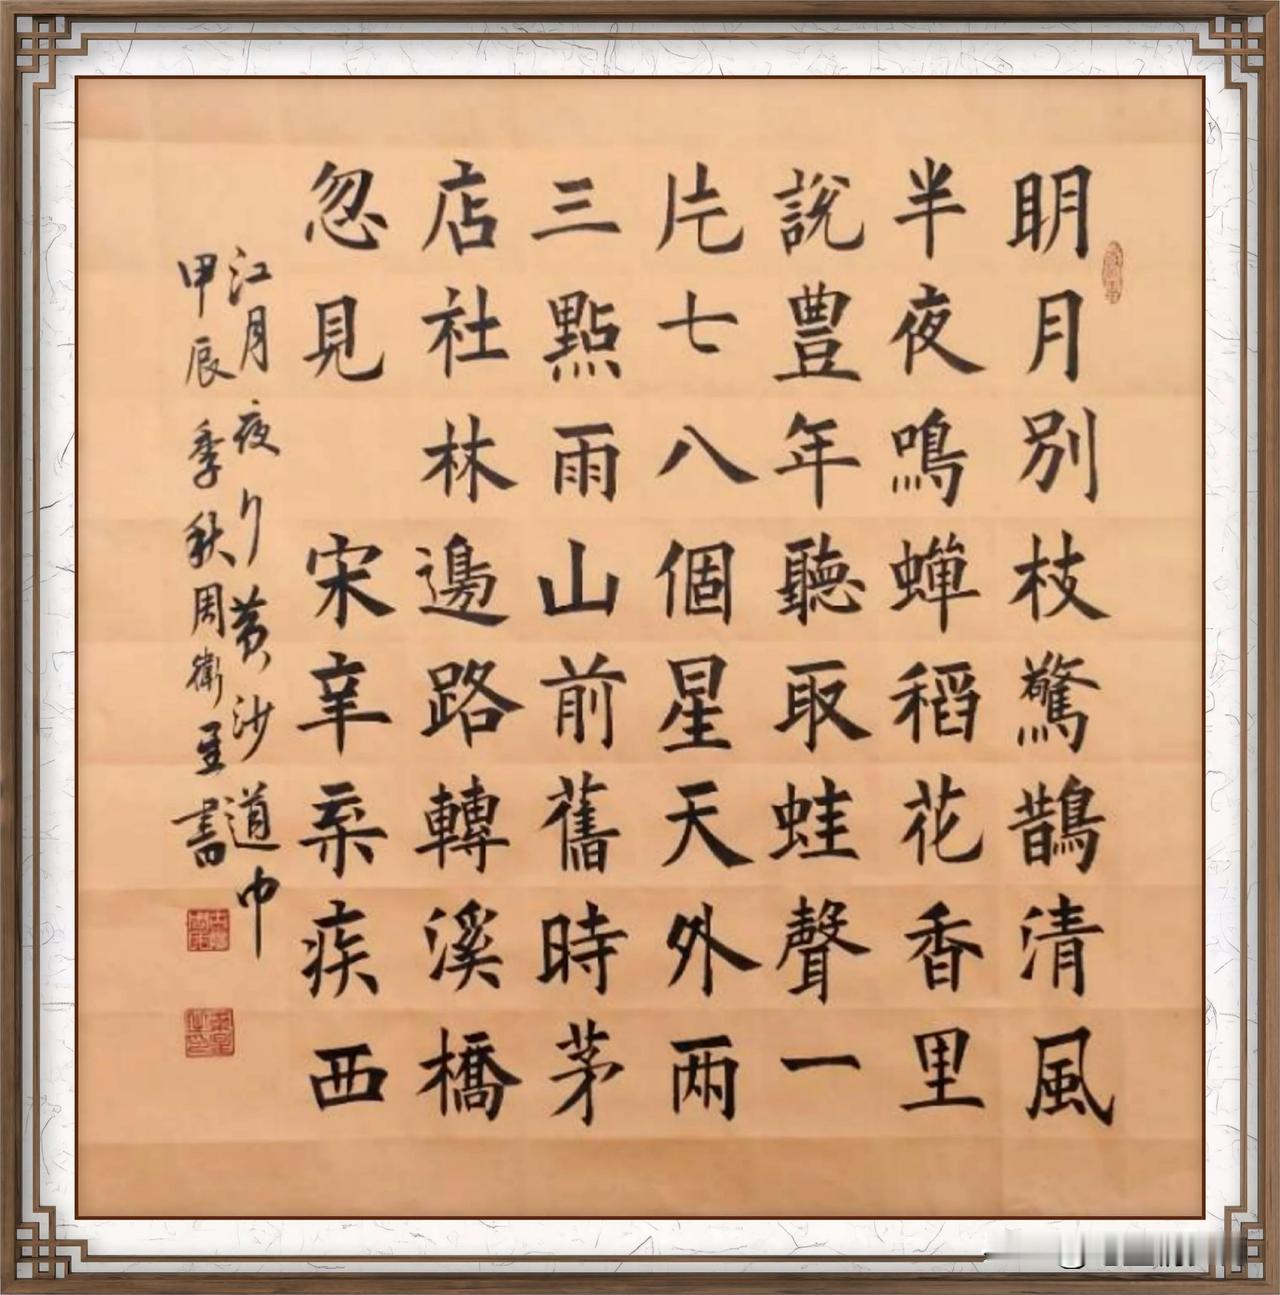 明月別枝驚鵲清風
半夜鳴蟬稻花香里
說豐年聽取蛙聲一
片七八個星天外兩
三點雨山前舊時茅
店社林邊路轉溪橋
忽見 宋辛棄疾西
江月夜行黃沙道中
甲辰季秋周衛星書